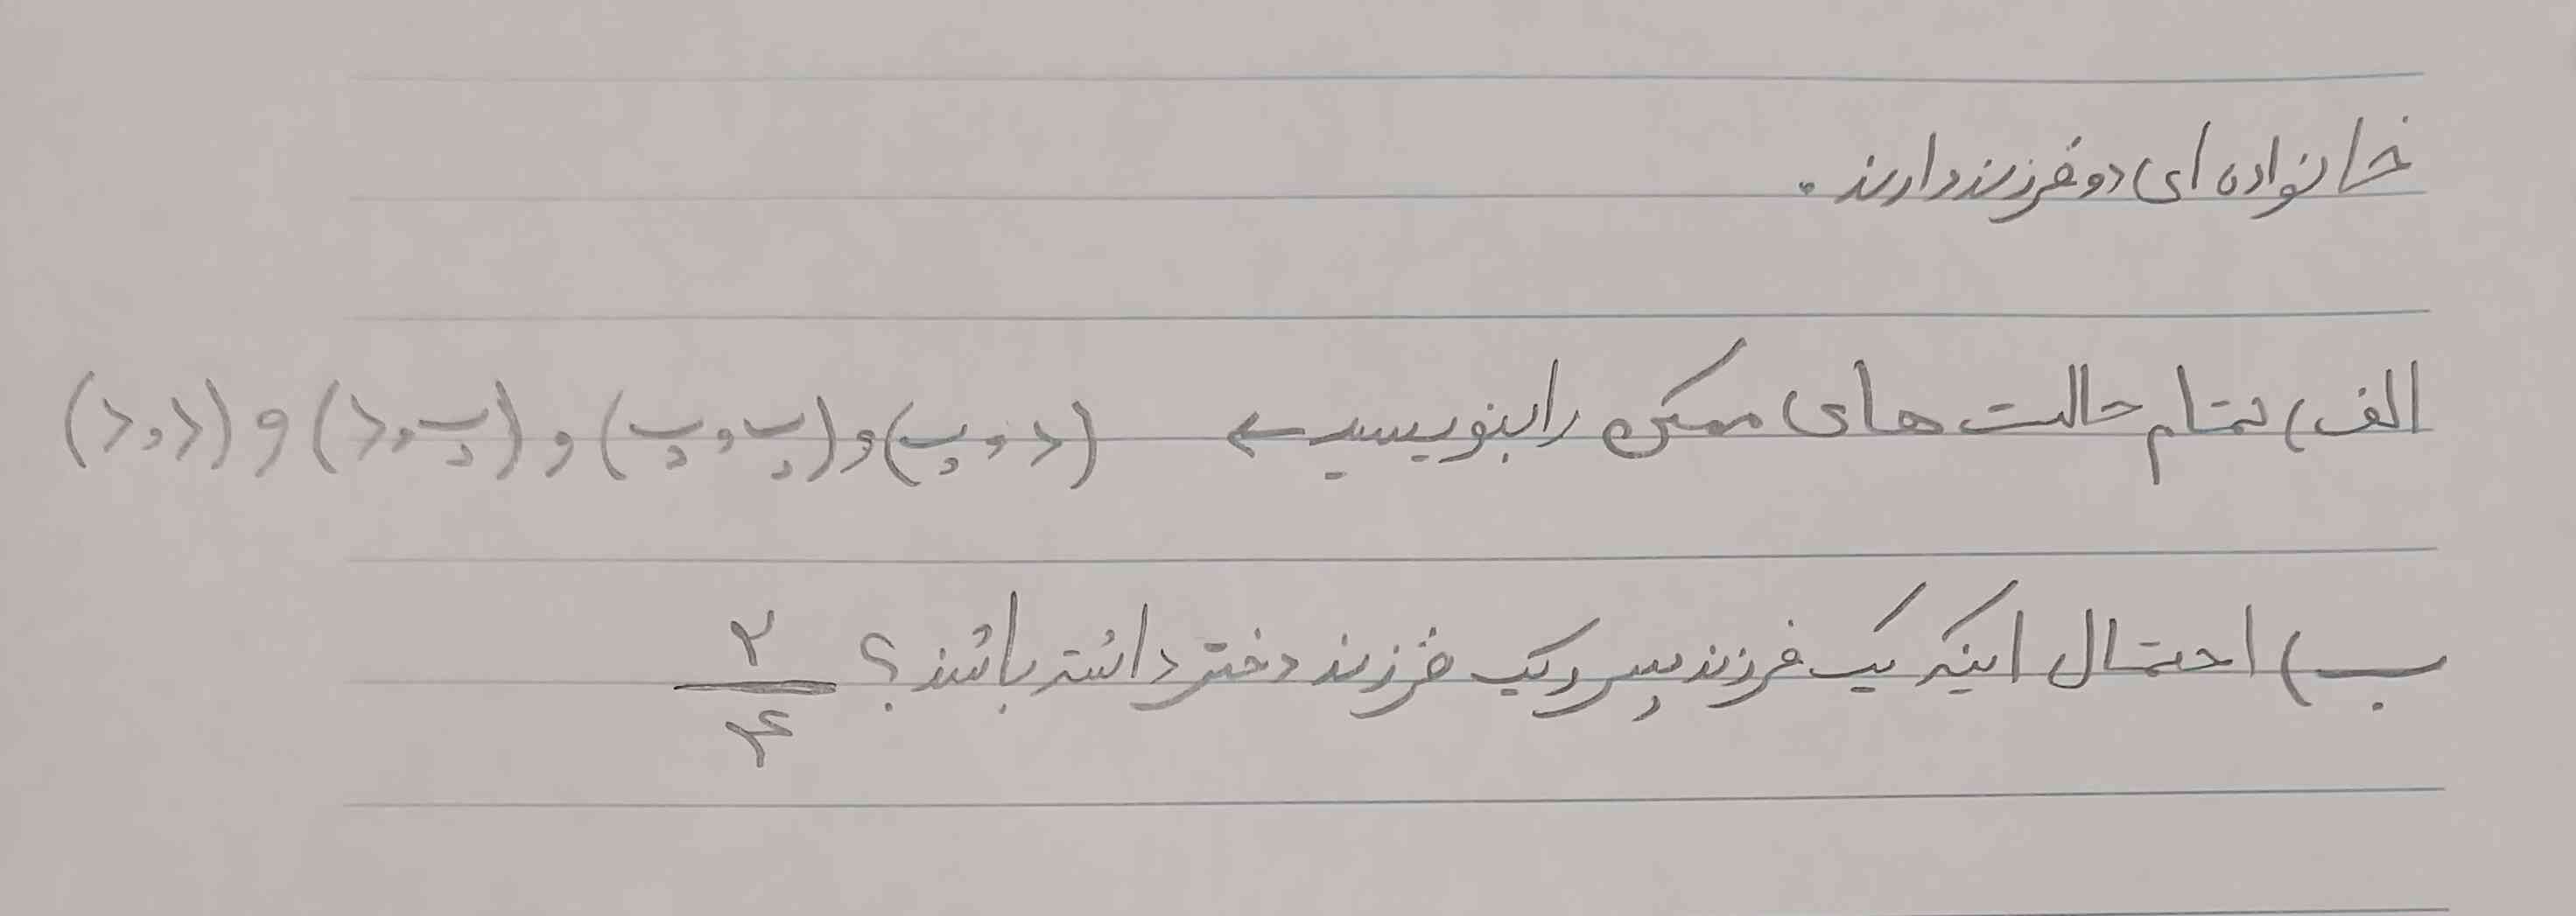 خانواده ای دو فرزند دارند.
الف) تمام حالت های ممکن را بنویسید ← (د،پ) و (پ،پ) و (پ،د) و (د،د)
ب) احتمال اینکه یک فرزند پسر و یک فرزند دختر داشته باشند؟ ۲/۴